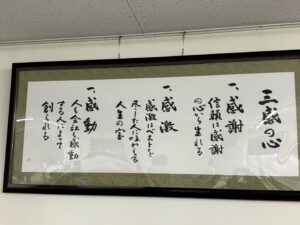 三感の心
一、感謝
信頼は感謝
の心から生れる
一、感激
感激はベストを
尽した人に味わえる
人生の宝
一、感動
人も会社も感動
する人によって
創られる